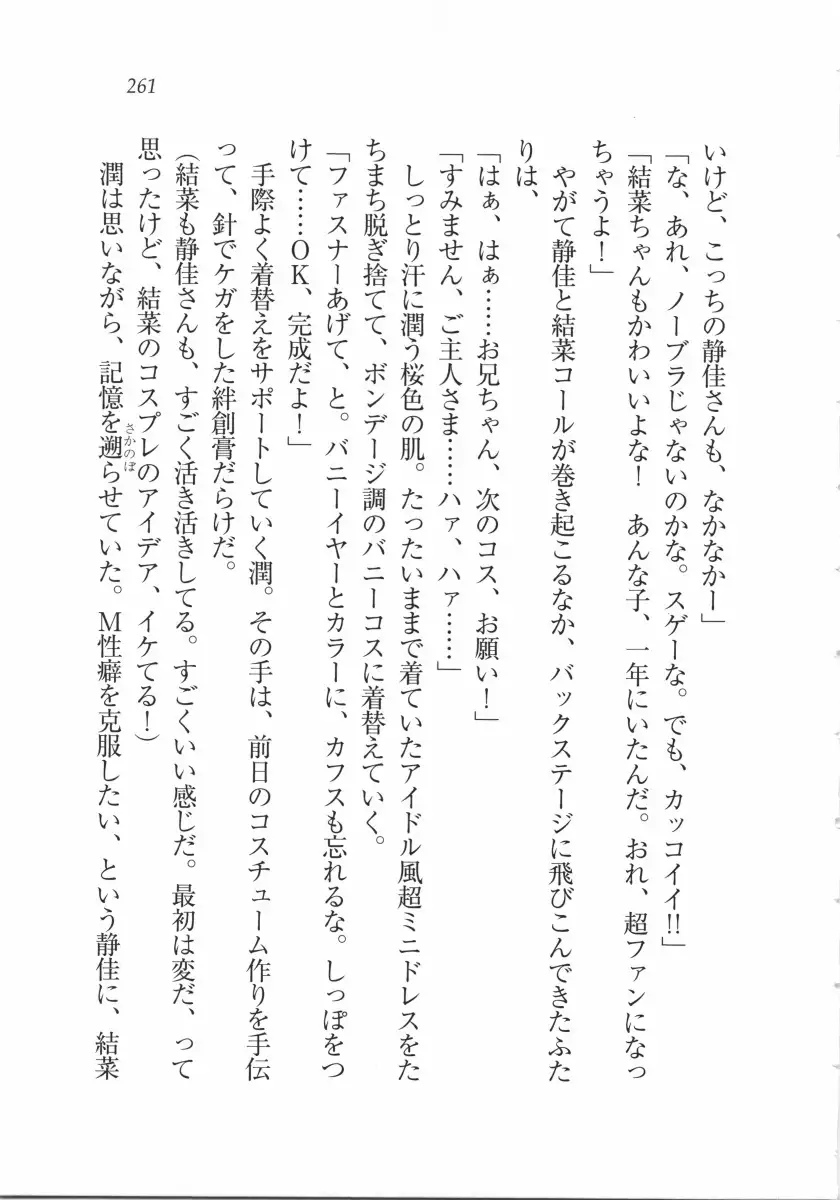 261
いけど、こっちの静佳さんも、なかなかー」
「な、あれ、ノーブラじゃないのかな。スゲーな。でも、カッコイイ!!」
「結菜ちゃんもかわいいよな！　あんな子、一年にいたんだ。おれ、超ファンになっ
ちゃうよ！」
　やがて静佳と結菜コールが巻き起こるなか、バックステージに飛びこんできたふた
りは、
「はぁ、はぁ……お兄ちゃん、次のコス、お願い！」
「すみません、ご主人さま……ハァ、ハァ……」
　しっとり汗に潤う桜色の肌。たったいままで着ていたアイドル風超ミニドレスをた
ちまち脱ぎ捨てて、ボンデージ調のバニーコスに着替えていく。
「ファスナーあげて、と。バニーイヤーとカラーに、カフスも忘れるな。しっぽをつ
けて……ＯＫ、完成だよ！」
　手際よく着替えをサポートしていく潤。その手は、前日のコスチューム作りを手伝
って、針でケガをした絆創膏だらけだ。
（結菜も静佳さんも、すごく活き活きしてる。すごくいい感じだ。最初は変だ、って
思ったけど、結菜のコスプレのアイデア、イケてる！）
　潤は思いながら、記憶を遡らせていた。Ｍ性癖を克服したい、という静佳に、結菜
さかのぼ